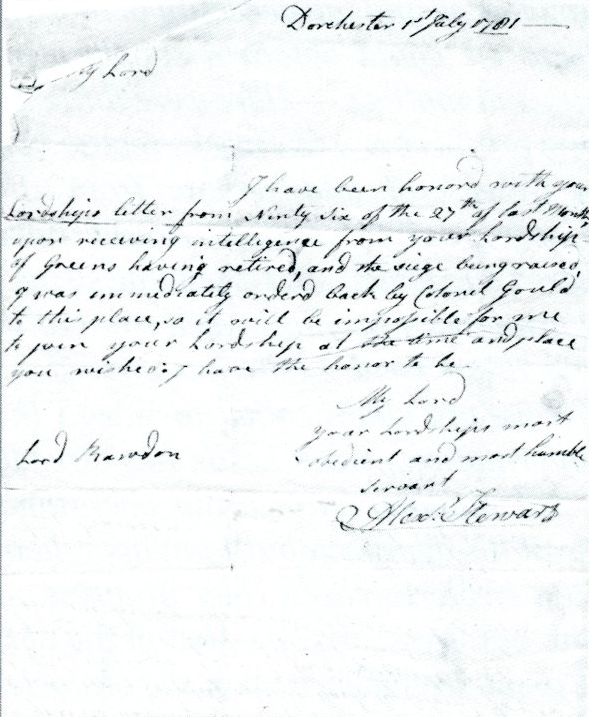 Dorchester 1st July 1781
My Lord
I have been honord with your
Lordships letter from Ninty Six of the 27th of last Month,
upon receiving intelligence from your Lordship
of Greens having retired, and the siege being raised,
I was immediately orderd back by Colonel Gould
to this place, so it will be impossible for me
to join your Lordship at the time and place
you wished. I have the honor to be
My Lord
your Lordships most
obedient and most humble
servant
Alexr. Stewart
Lord Rawdon